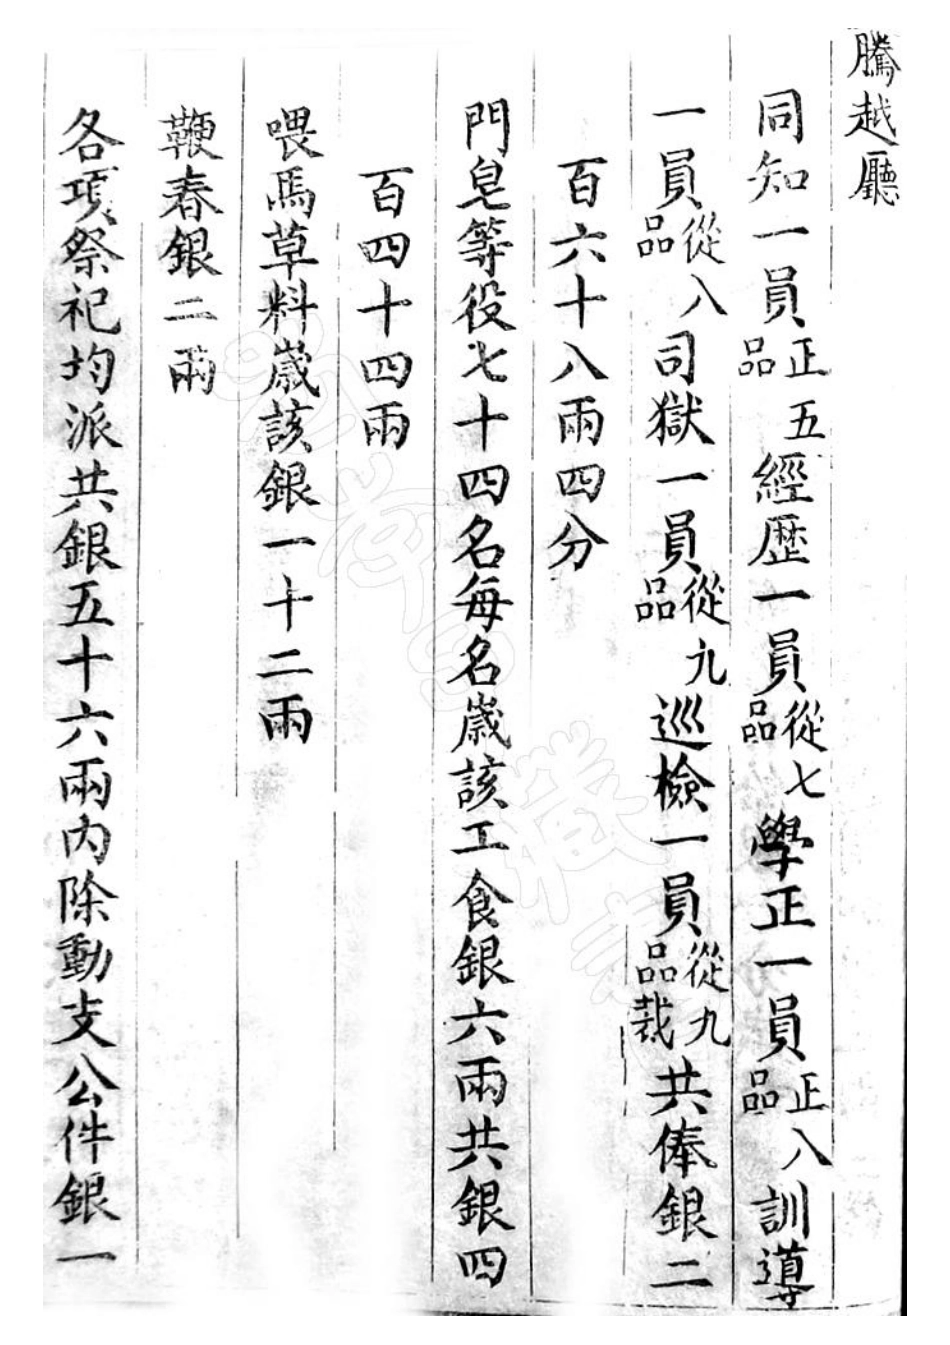 騰越廳
同知一員正五品經歷一員從七品學正一員正八品訓導
一員從八品司獄一員從九品巡檢一員從九品裁共俸銀二
百六十八兩四分
門皂等役七十四名每名歲該工食銀六兩共銀四
百四十四兩
喂馬草料歲該銀一十二兩
鞭春銀二兩
各項祭祀均派共銀五十六兩內除動支公件銀一